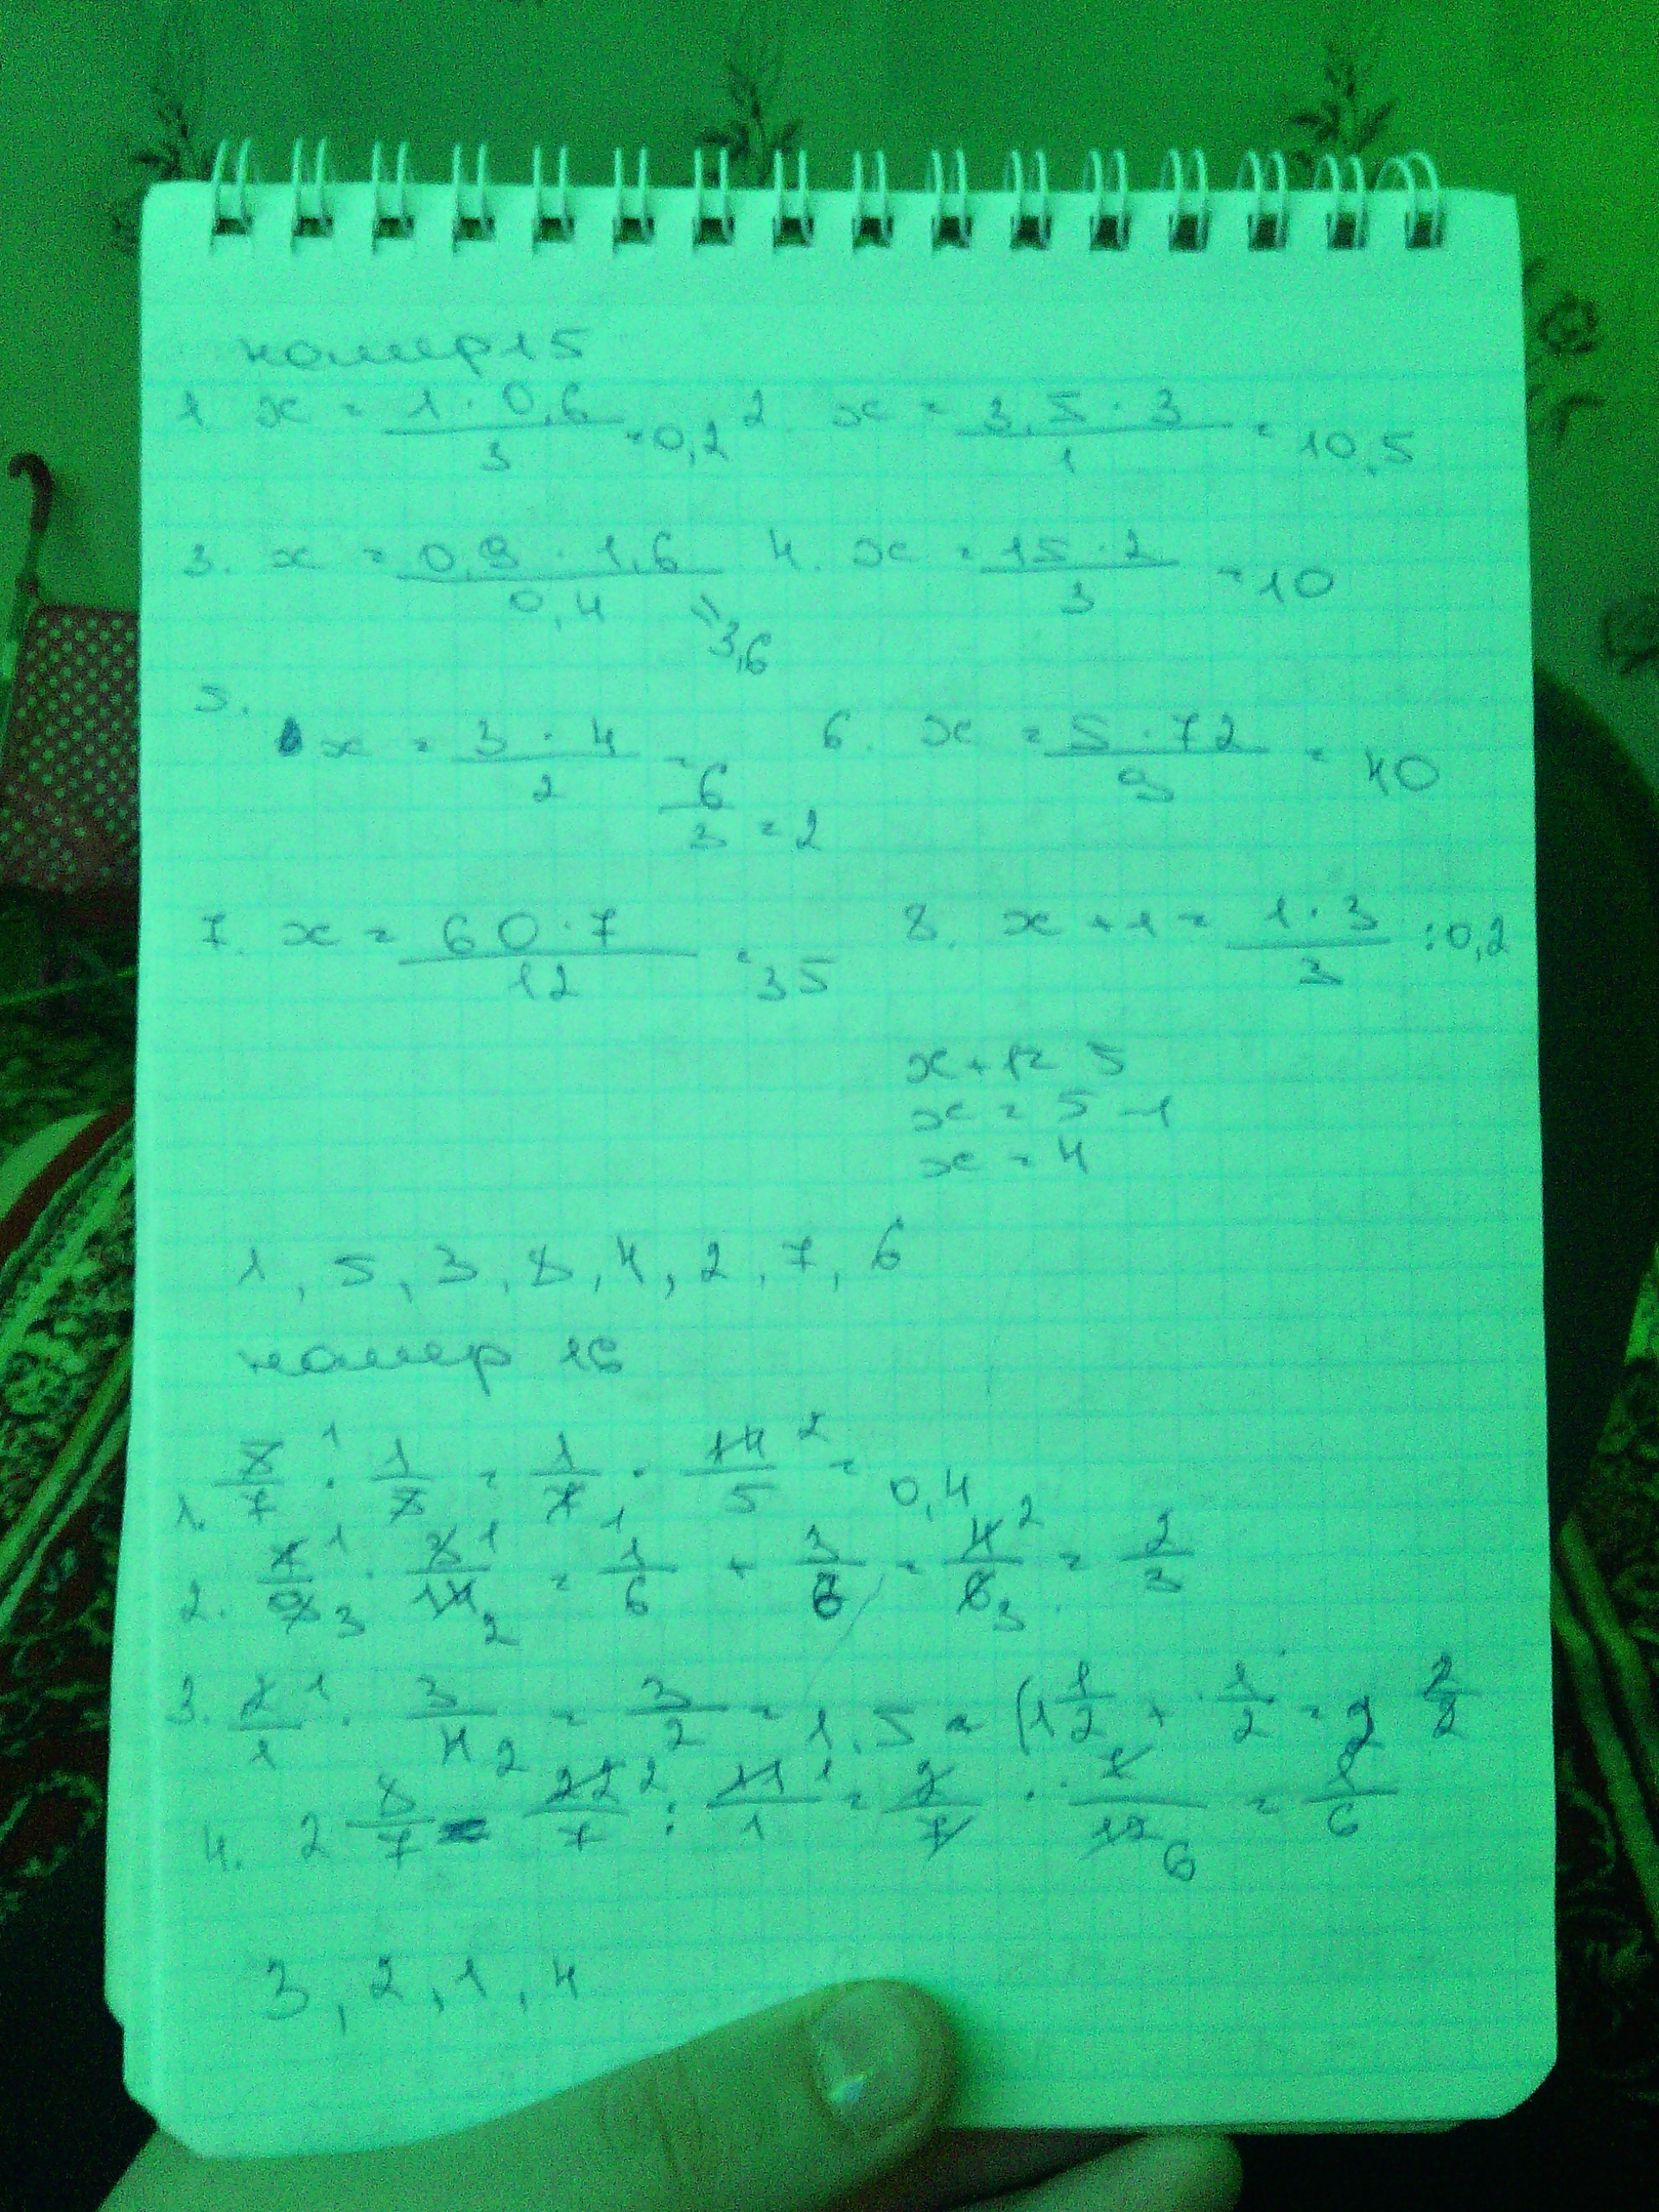 номер 15
1. x = 1 · 0,6 / 3 = 0,2 2. x = 3,5 · 3 / 1 = 10,5
3. x = 0,9 · 1,6 / 0,4 = 3,6 4. x = 15 · 2 / 3 = 10
5. x = 3 · 4 / 2 = 6 / 3 = 2 6. x = 5 · 72 / 9 = 40
7. x = 60 · 7 / 12 = 35 8. x + 1 = 1 · 3 / 3 : 0,2
x + 1 = 5
x = 5 - 1
x = 4
1, 5, 3, 8, 4, 2, 7, 6
номер 16
1. 8/7 1 · 1/8 = 1/7 1 · 14/5 2 = 0,4
2. 7/9 1 3 · 3/14 1 2 = 1/6 + 3/6 = 4/6 2 3 = 2/3
3. 2/1 1 · 3/4 2 = 3/2 = 1,5 = (1 1/2 + 1/2 = 2
4. 2 8/7 = 22/7 2 : 11/1 1 = 2/7 · 7/12 6 = 1/6
3, 2, 1, 4